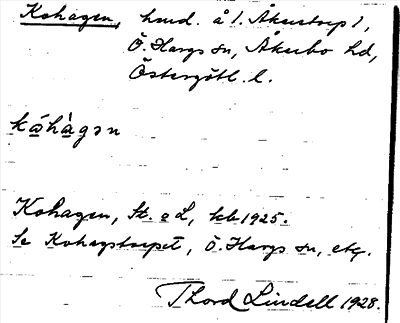 Kohagen, hmd. å 1. Åkerstorp 1,
Ö. Hargs sn, Åkerbo hd,
Östergötl. l.
kåhàgən
Kohagen, St. o L, kb 1925.
Se Kohagstorpet, Ö. Hargs sn, etc.
Thord Lindell 1928.